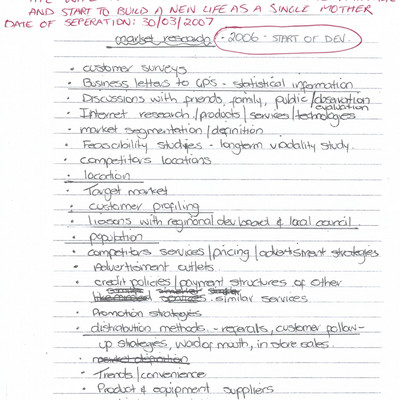 AND START TO BUILD A NEW LIFE AS A SINGLE MOTHER
DATE OF SEPERATION: 30/03/2007
market research · 2006 - START OF DEV.
· customer surveys
· Business letters to GP's - statistical information
· Discussions with friends, family, public/observation
evaluation
· Internet research/products/services/technologies
· market segmentation/definition
· Feasibility studies - longterm viability study.
· competitors locations
· location
· Target market
· customer profiling
· liasons with regional dev board & local council.
· population
· competitors services/pricing/advertisment strategies
· Advertisment outlets.
· credit policies/payment structures of other
similar services
· Promotion strategies
· distribution methods. - reperalls, customer follow-
up strategies, word of mouth, in store sales.
· market
· Trends/convenience
· Product & equipment suppliers